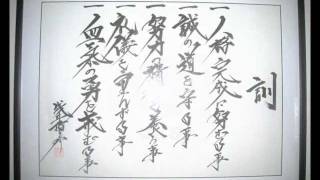 訓
一、人格完成に努むる事
一、誠の道を守る事
一、努力の精神を養う事
一、礼儀を重んずる事
一、血気の勇を戒むる事